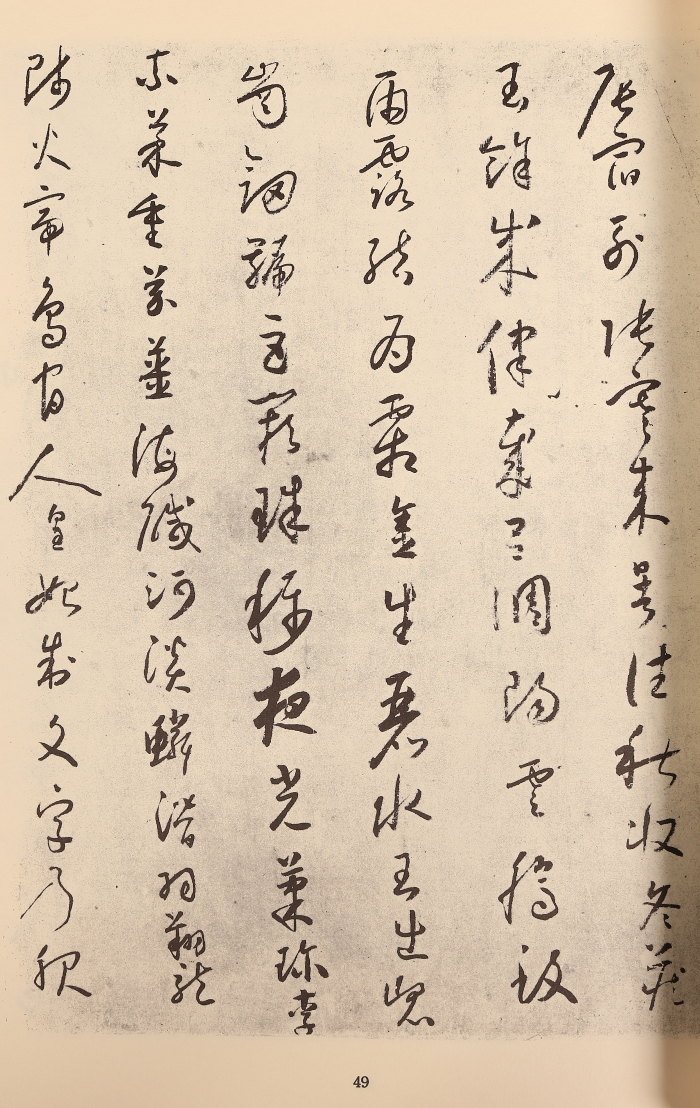 辰宿列張寒来暑往秋収冬蔵
玉餘成律歳呂調陽雲騰致
雨露結為霜金生麗水玉出崑
崗剣號巨闕珠称夜光菓珍李
柰菜重芥薑海醎河淡鱗潜羽翔龍
師火帝鳥官人皇始制文字乃服
49